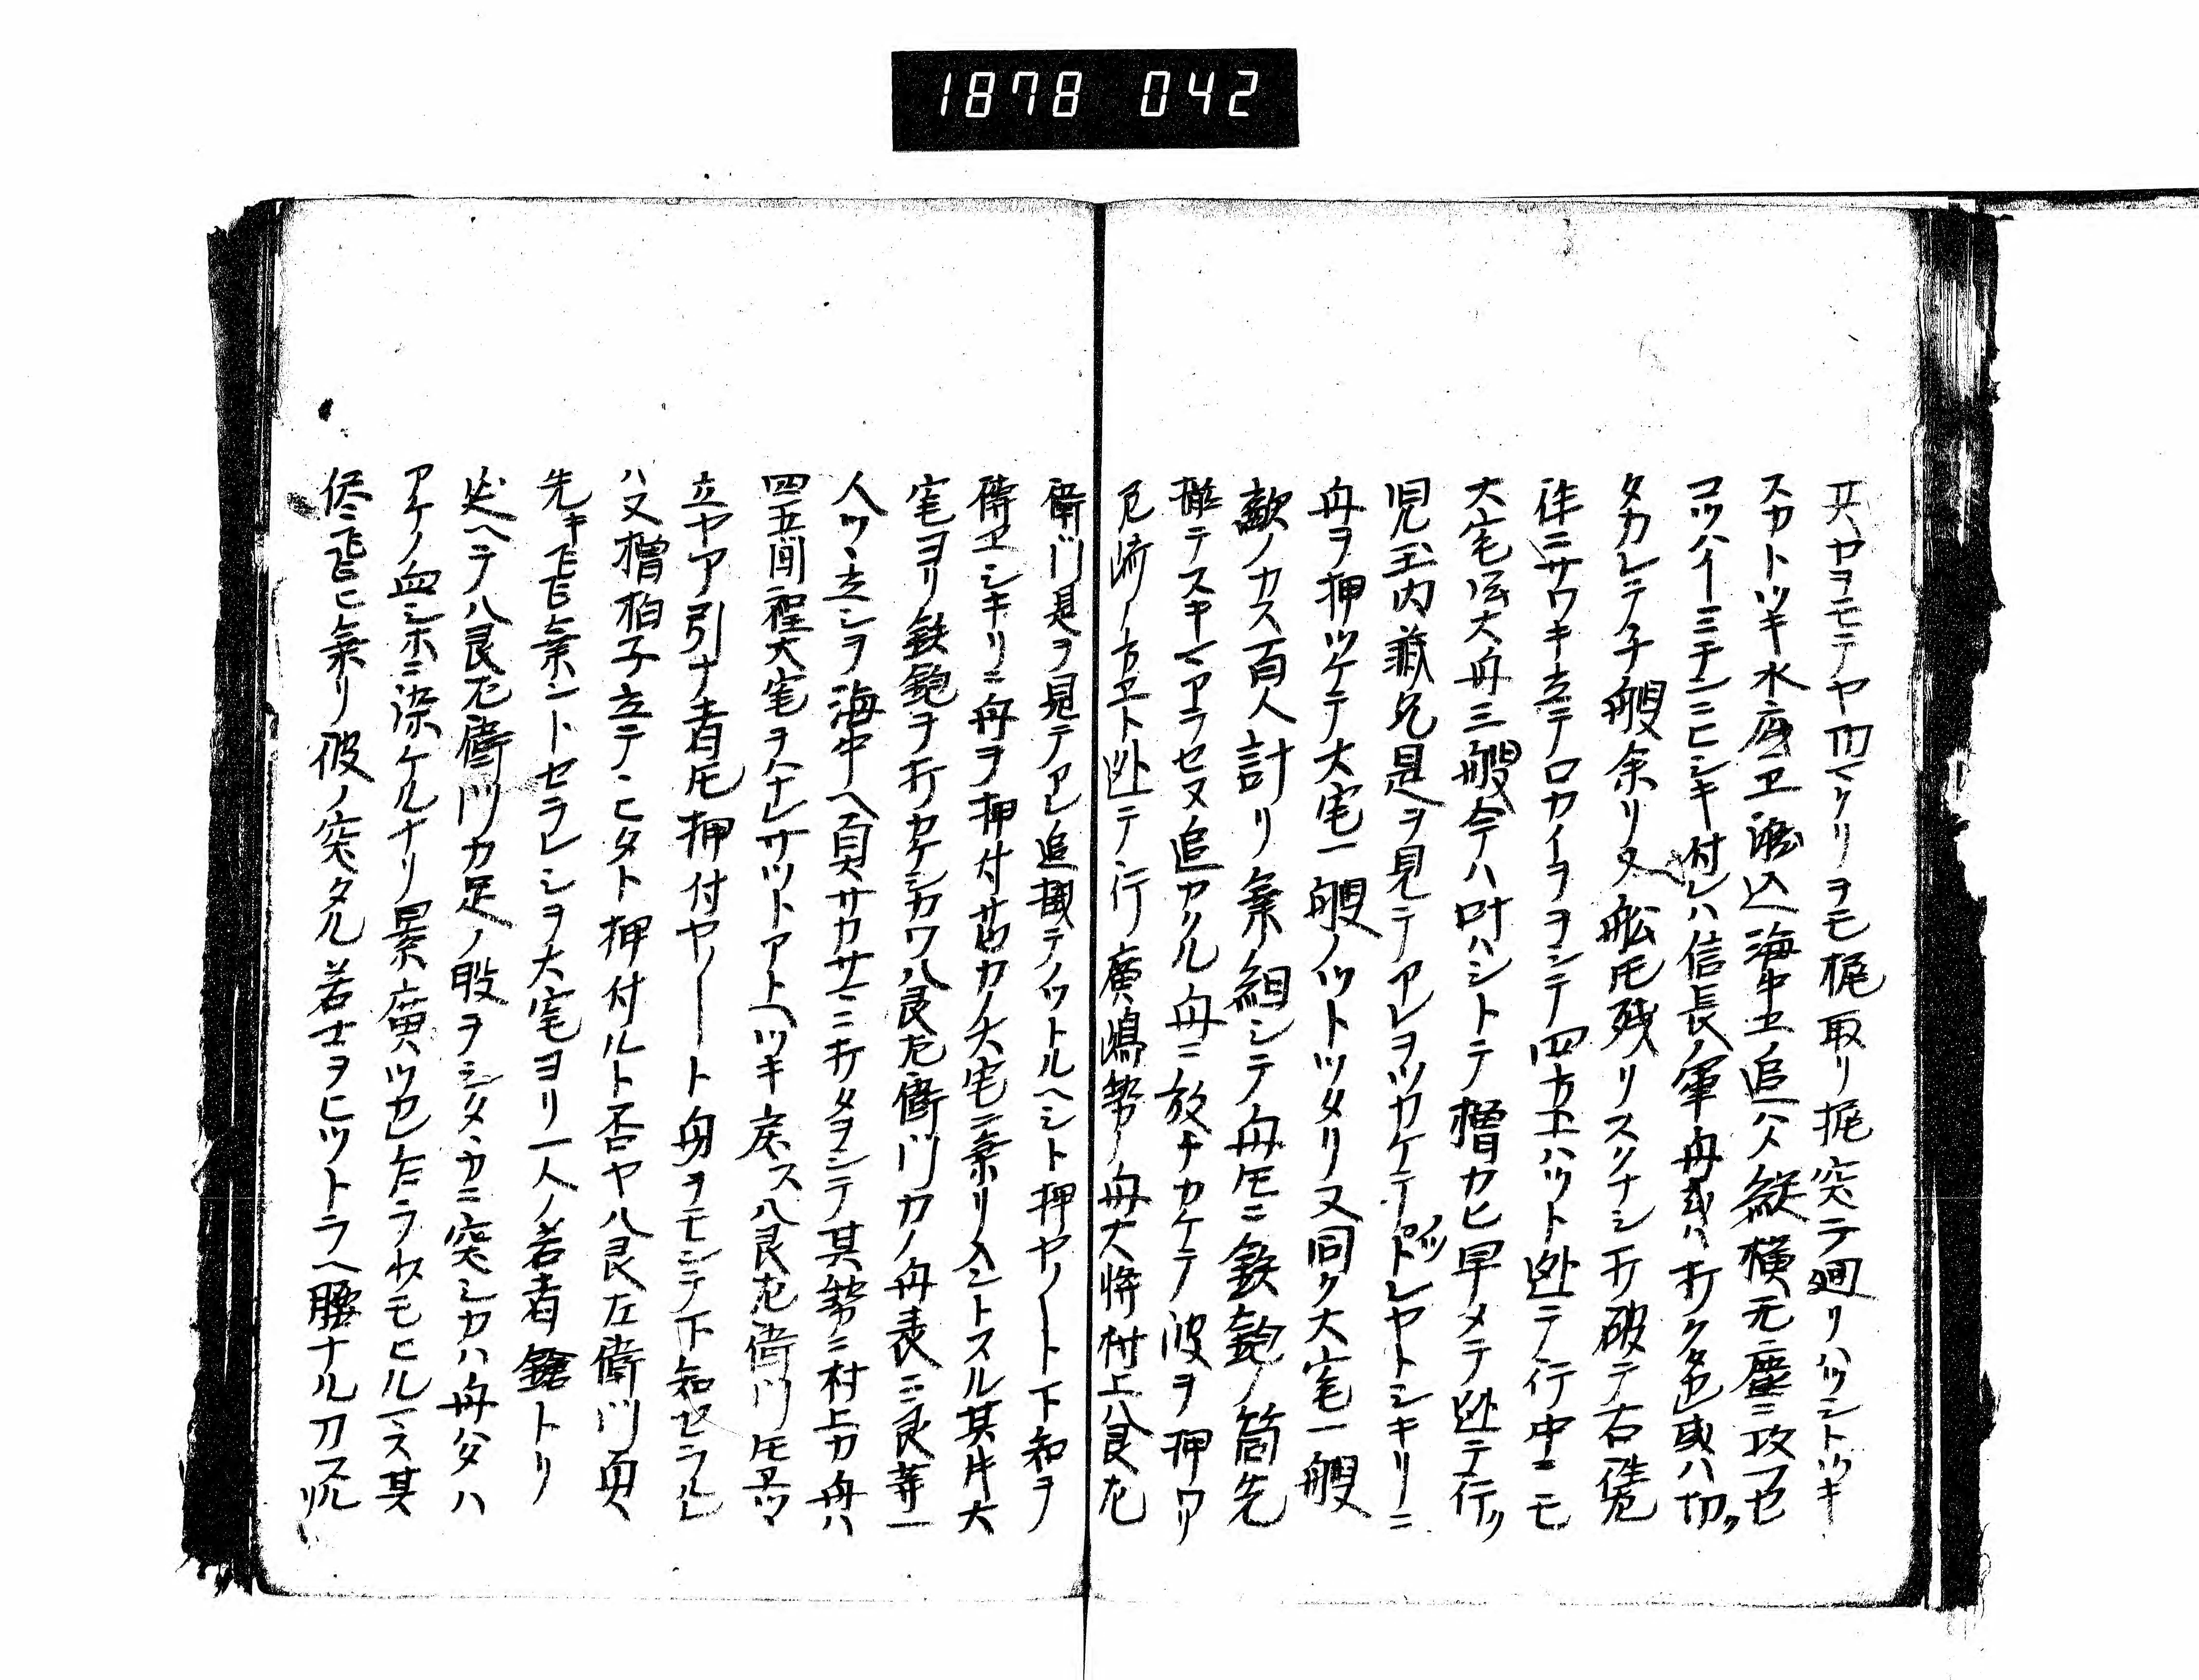 1878 042
共ヤヲモテヤ切マクリヲモ梶取リ梶突テ廻リハツシトツキ
スカトツキ水底ヱ 込海中ヱ追ハメ縦横无塵ニ攻
コツハイ ミチンニヒシキ付レハ信長ノ軍舟或ハ打クタキ或ハ切
タカレテ子艘余リ又舩モ残リスクナシ打破テ右
ニサワキ立テロカイヲヲシテ四方ヱハツト迯テ行中ニモ
大宅 大舟三艘今ハ叶ハシトテ櫓カヒ早メテ迯テ行
児玉内蔵允是ヲ見テアレヲツカケテトレヤトシキリニ
舟ヲ押ツケテ大宅一艘ノツトツタリ又同ク大宅一艘
敵ノカス百人計リ乗組シテ舟モニ鉄鉋ノ筒先
テスキマアラセヌ追カクル舟ニ放チカケテ波ヲ押ワリ
尼崎ノ方ヱト迯テ行廣嶋勢ノ舟大将村上八良左
衛門是ヲ見テアレ追 テノツトルヘシト押ヤノート下知ヲ
シキリニ舟ヲ押付 カノ大宅ニ乗リ入ントスル其片大
宅ヨリ鉄鉋ヲ打カケシカワ八良左衛門カノ舟表ニ良等一
人ツヽ立シヲ海中ヘ真サカサニ打タヲシテ其勢ニ村上カ舟ハ
四五間程大宅ヲハナレサツトアトヘツキ戻ス八良左衛門モ
立ヤア引ナ者モ押付ヤノート舟ヲモシテ下知セラルレ
ハ又櫓拍子立テヽヒタト押付ルト否ヤ八良左衛門真
先キ飛乗ントセラレシヲ大宅ヨリ一人ノ若者鎗トリ
ヘテ八良左衛門カ足ノ股ヲシタヽカニ突シカハ舟ハタハ
アケノ血シホニ染ケルナリ景廣 モヒルマス其
侭ニ飛ヒ乗リ彼ノ突タル若士ヲヒツトラヘ腰ナル刀